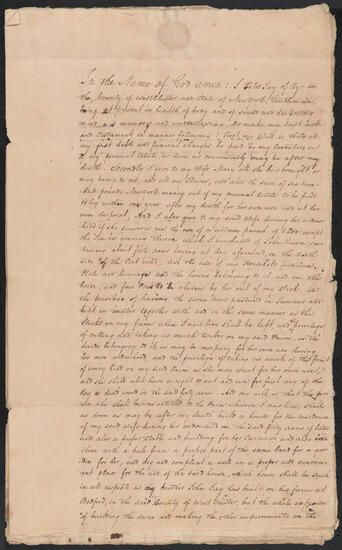 In the Name of God amen: I Peter Jay of Rye in
the County of Westchester and State of New York Gentleman
being at present in health of body and of sound and disposing
mind and memory and understanding, do make my last will
and testament in manner following: First, my will is that all
my just debts and funeral charges be paid by my executors out
of my personal estate, as soon as conveniently may be after my
death. Secondly I give to my wife Mary all she has brought, or
may bring to me, and all my Slaves, and also the sum of six hun-
dred pounds New York money out of my personal estate to be paid
to her within one year after my death for her own use and at her
own disposal, And I also give to my said wife during her widow-
hood if she survives me the use of a certain parcel of land except
the timber growing thereon which I purchased of John Guion con-
taining about fifty acres laying at Rye aforesaid, on the north
side of the Post road, and the use of my Household furniture,
Plate and Carriage and the horses belonging to it, and one other
horse, and four cows to be chosen by her out of my Stock, and
the privilege of having the same cows pastured in Summer and
kept in winter together with and in the same manner as the
Stock on my farm where I now live shall be kept and privilege
of cutting and taking as much timber on my said Farm, or the
lands belonging to it as may be necessary for her own use during
her own widowhood, and the privilege of taking as much of the fruit
of every kind on my said Farm as she may want for her own use;
and she shall also have a right to cut and use for fuel any of the
dry or dead wood on the said forty acres. And my will is that the per-
son who shall become entitled to the Farm whereon I now live, shall
as soon as may be after my death build a house for the residence
of my said wife during her widowhood on the said forty acres of land
and also a proper stable and building for her Carriage and also
close with a pale fence a proper part of the same land for a gar-
den for her, and dig and compleat a well in a proper and conveni-
ent place for the use of the said house, which house shall be such
in all respects as my brother John Jay has built on his farm at
Bedford, in the said County of West Chester, but the whole expence
of building the same and making the other improvements on the